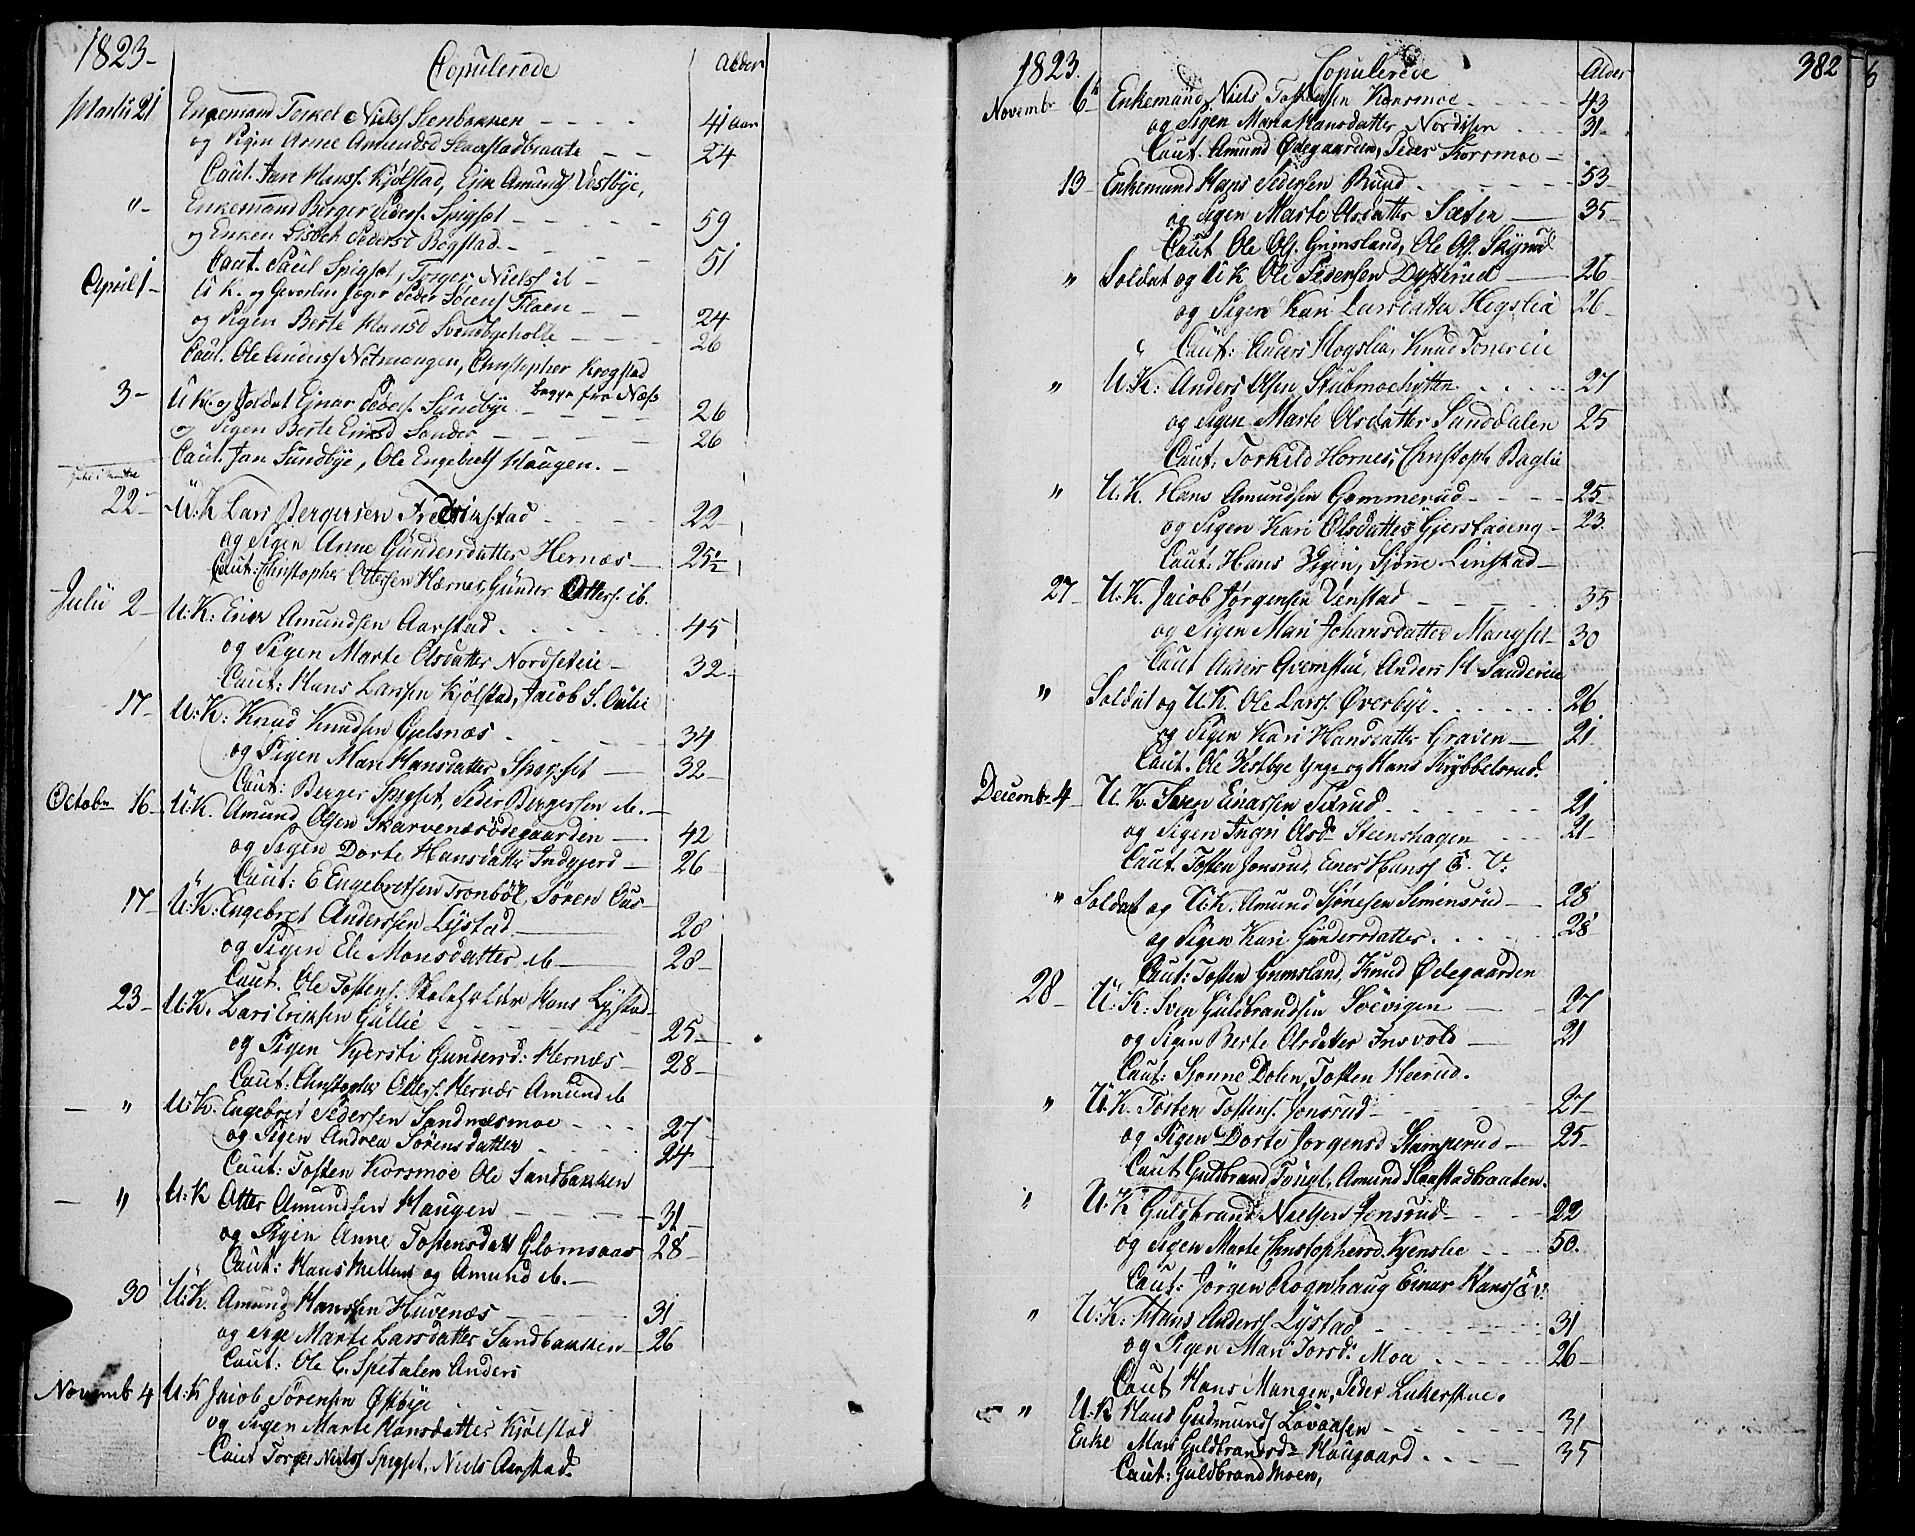 1823-
Copulerede
Alder
Martii 21 Enkemand Torkel Niels Steenbakken 41 aar
og Pigen Anne Amundsd Slaastadbraate 24
Caut. Jan Hanss. Kjølstad, Ejm Amunds Vestbye,
"- Enkemand Berger Peders. Spigset 59
og Enken Lisbeth Pedersd Bogstad 51
Caut. Paul Spigset, Torger Nielss ib
April 1- U K. og Gevorben Jæger Peder Sörens Floen 24
og Pigen Berte Hansd 26
Caut. Ole Anders Notmangen, Christopher Krogstad
begge fra Næss
3- U K. og Soldat Einar Peders. Sundbye 26
og Pigen Berte Eriksd Sander 26
Caut. Jan Sundbye, Ole Engebrets Haugen.
22- U.K Lars Bergersen Fredrikstad 22
og Pigen Anne Gundersdatter Hernæs 25½
Caut: Christopher Ottersen Hærnes, Gunder Otters. ib.
Julii 2- U.K: Erik Amundsen Aarstad 45
og Pigen Marte Olsdatter Nordseteie 32
Caut: Hans Larssen Kjölstad, Jacob S. Oulie
17- U.K: Knud Knudsen Gjelsnæs 34
og Pigen Mari Hansdatter Spigset 32
Caut: Berger Spigset, Peder Bergersen ib.
Octobr 16- U.K. Amund Olsen Skarvenæsödegaarden 42
og Pigen Dorte Hansdatter Indgjerd 26
Caut: E Engebretsen Tronböl, Sören Ous-
17- U.K: Engebret Anderssen Lystad 28
og Pigen Eli Monsdatter ib 28
Caut. Ole Tostens. Skoleholder Hans Lystad
23- U.K. Lars Eriksen Gullie 25
og Pigen Kjersti Gundersd: Hernæs 28
Caut: Christopher Otters. Hernæs Amund ib
- " U.K. Engebret Pedersen Sandnæsmoe 27
og Pigen Andrea Sörensdatter 24
Caut: Tosten Korsmoe Ole Sandbakken
- " U.K Otter Amundsen Haugen 31
og Pigen Anne Tostensdatt Glomsaas 28
Caut: Hans Mellem og Amund ib.
30 U.K. Amund Hanssen Huvenæs 31
og Pige Marte Larsdatter Sandbakken 26
Caut: Ole C. Spetalen Anders
Novembr 4 U.K Jacob Sörensen Østbye
og Pigen Marte Hansdatter Kjölstad
Caut Torger Nielss Spigset, Niels Aarstad.
1823.
Copulerede
Alder
382
Novembr 6- Enkemand Niels Tostensen Korsmoe 43
og Pigen Maria Hansdatter Nordseter 31
Caut. Amund Ødegaarden, Peder Korsmoe
13- Enkemand Hans Pedersen Ruud 53
og Pigen Marte Olsdatter Sæter 35
Caut Ole Ols. Grimsland, Ole Ols. Skÿrud
" Soldat og U K Ole Pedersen Dysterud 26
og Pigen Kari Larsdatter Hegslia 26
Caut: Anders Hogslia, Knud Tonereie
" U.K: Anders Olsen Stubmoehytten 27
og Pigen Marte Olsdatter Sanddalen 25
Caut: Torkild Hornes, Christoph Baglie
" U.K. Hans Amundsen Gommerud 25
og Pigen Kari Olsdatter Gjerstadeng 23
Caut. Hans Igen, Sjøne Linstad
27- U.K. Jacob Jörgensen Vinstad 35
og Pigen Mari Johansdatter Mangset 30
Caut Anders Sandereie
" Soldat og U.K. Ole Larss. Øverbye 26
og Pigen Kari Hansdatter Graven 21
Caut. Ole Vestbye Ynge og Hans Krybbelsrud.
Decembr 4 U.K. Sören Einarsen Tixrud 21
og Pigen Ingri Olsdr Steenshagen 21
Caut. Tosten Jonsrud, Einer Hanss E. V.
" Soldat og U.K. Amund Sjönesen Simensrud 28
og Pigen Kari Gundersdatter 28
Caut: Tosten Grimsland, Knud Ødegaarden
28- U.K. Sven Guldbrandsen Soevigen 27
og Pigen Berte Olsdatter Fusvold 21
Caut: Sjonne Dolen, Tosten Heerud.
" U.K. Tosten Tostens. Jonsrud 27
og Pigen Dorte Jorgensd Stamperud 25
Caut Guldbrand Tongl, Amund Slaastadbraaten.
" U.K Guldbrand Nielsen Jonsrud 22
og Pigen Marte Christophersd. Kjenslie 50.
Caut: Jörgen Rognhaug Einar Hanss E v.
" U.K: Hans Anderss Lystad 31
og Pigen Mari Torsdr Moe 26
Caut Hans Mangen, Peder Lukerstue.
" U.K Hans Gudmunds Lövaasen 31
Enke Mari Guldbrandsdr Haugaard 35
Caut: Guldbrand Moen,